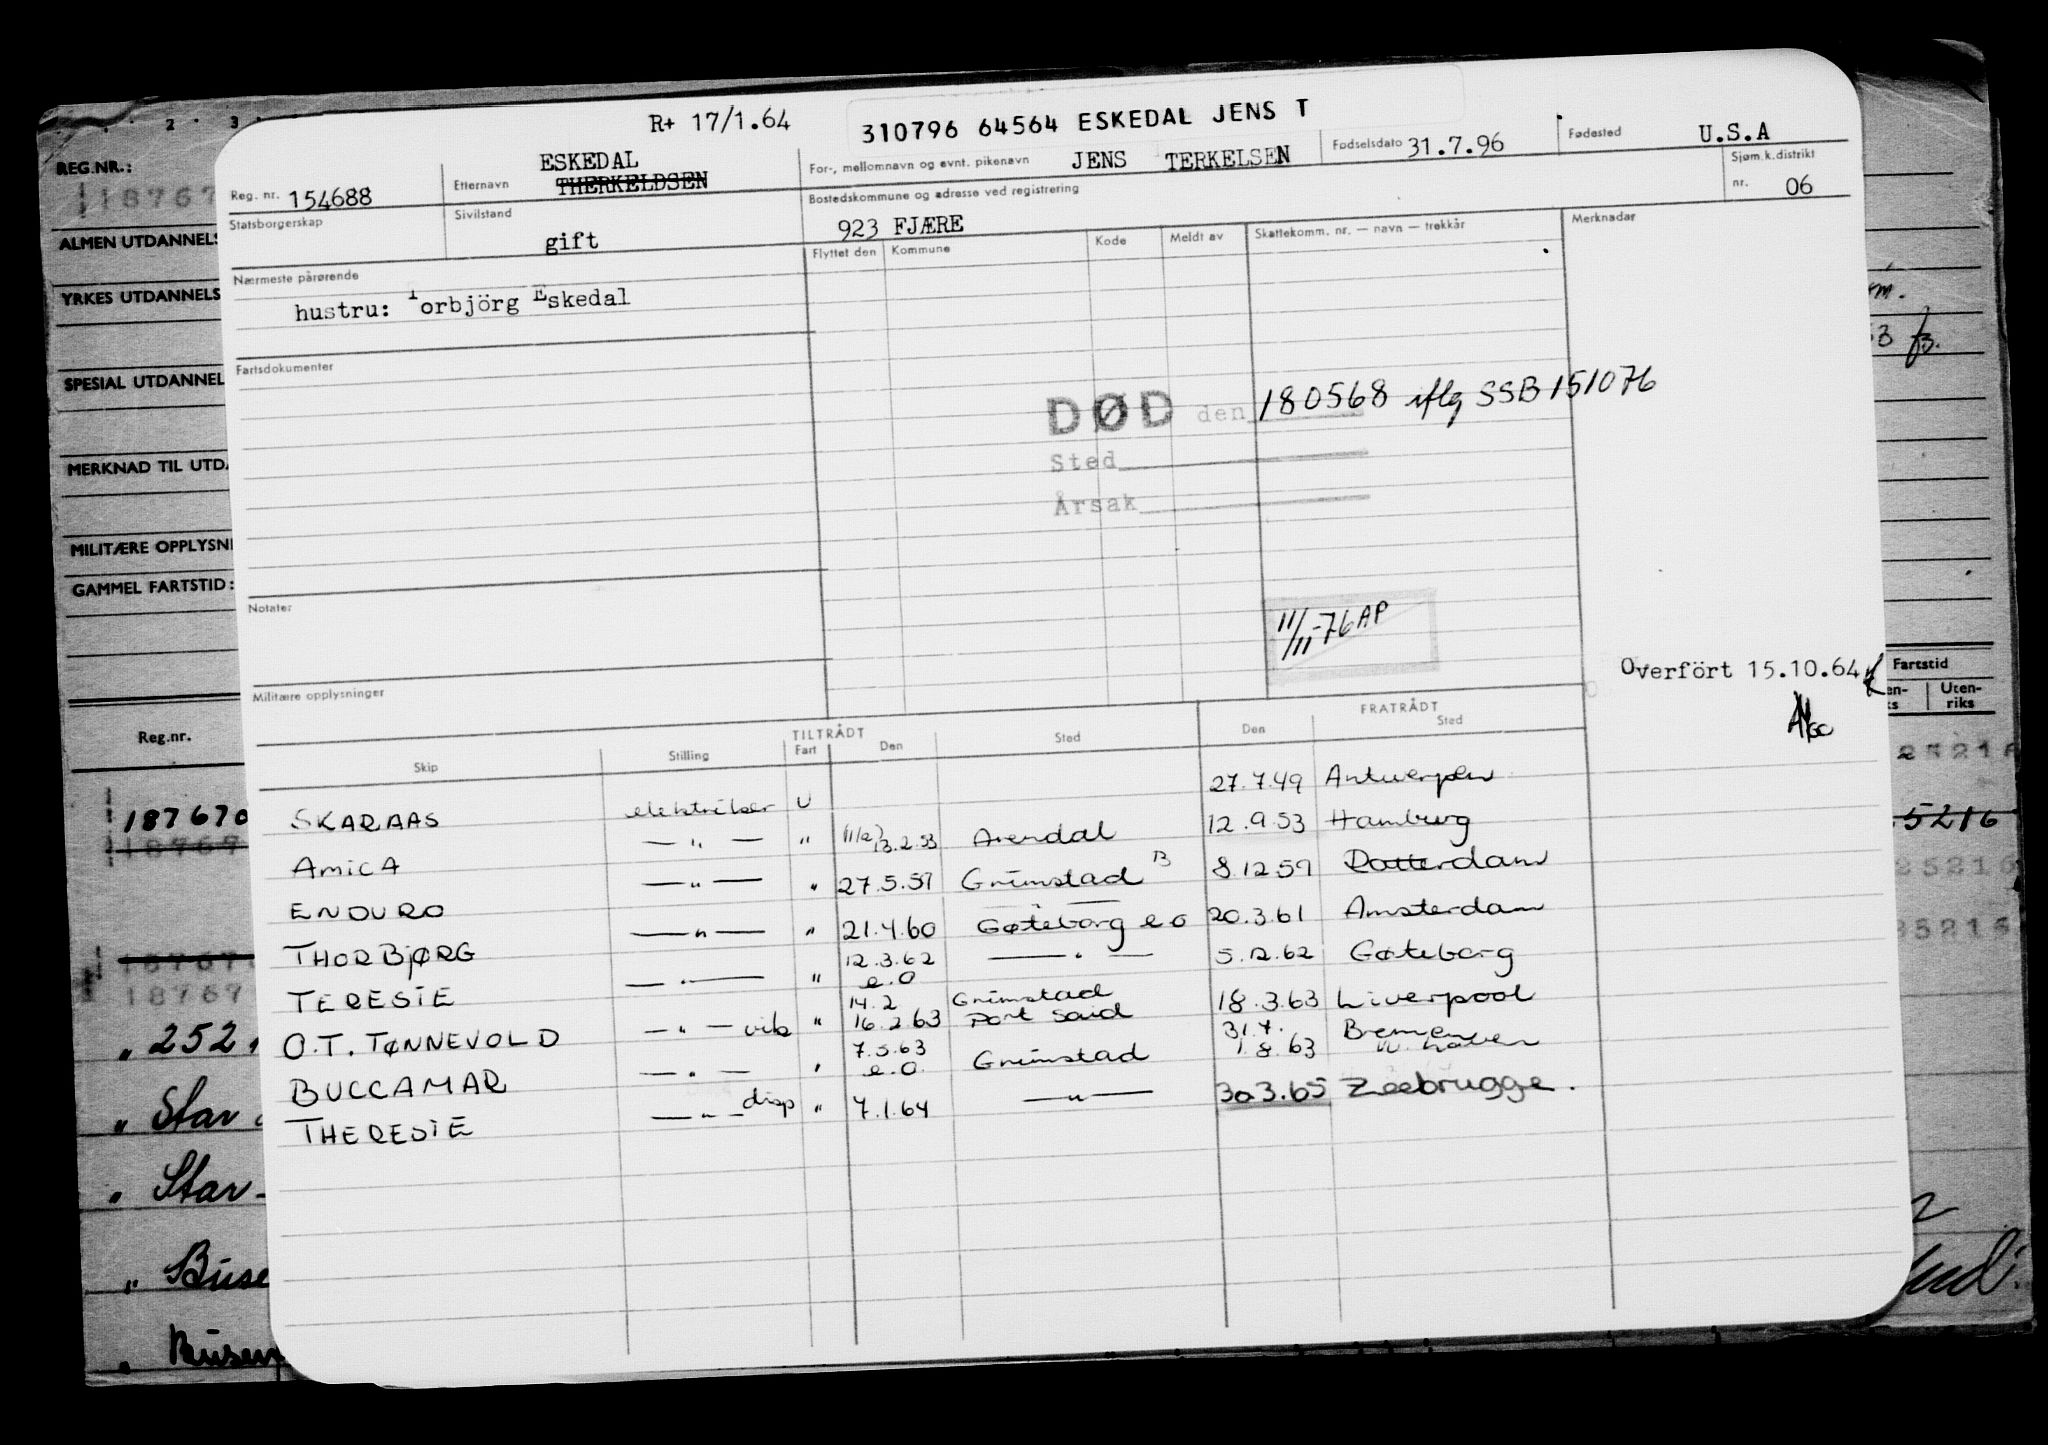 R+ 17/1.64
310796 64564 ESKEDAL JENS T
Reg. nr. 154688
Etternavn ESKEDAL
THERKELDSEN
For-, mellomnavn og evnt. pikenavn JENS TERKELSEN
Fødselsdato 31.7.96
Fødested U.S.A
Statsborgerskap
Sivilstand gift
Bostedskommune og adresse ved registrering
923 FJÆRE
Sjøm.k.distrikt
nr. 06
Nærmeste pårørende
hustru: Torbjörg Eskedal
Flyttet den Kommune Kode Meldt av Skattekomm. nr. — navn — trekkår
Merknader
Fartsdokumenter
DØD den 180568 iflg SSB 151076
Sted
Årsak
Notater
11/11-76 AP
Militære opplysninger
Overfört 15.10.64
TILTRÅDT FRATRÅDT
Skip Stilling Fart Den Sted Den Sted
SKARAAS elektriker U 27.7.49 Antwerpen
AMICA — " — " (11/2) 13.2.53 Arendal 12.9.53 Hamburg
ENDURO — " — " 27.5.59 Grimstad 8.12.59 Rotterdam
THORBJØRG — " — " 21.4.60 Gøteborg e.o 20.3.61 Amsterdam
TERESIE — " — " 12.3.62 e.o — " — 5.12.62 Gøteborg
O.T. TØNNEVOLD — " — vik " 14.2 Grimstad
16.2.63 Port Said 18.3.63 Liverpool
BUCCAMAR — " — " 7.5.63 e.o. Grimstad 31.7. Bremen
1.8.63 W. haven
THERESIE — " — disp " 7.1.64 — " — 30.3.65 Zeebrugge.
REG.NR.:
18767
ALMEN UTDANNELS
YRKES UTDANNELS
SPESIAL UTDANNEL
MERKNAD TIL UTDA
MILITÆRE OPPLYSNI
GAMMEL FARTSTID:
Reg.nr.
Fartstid
Uten-
riks
187670
18767
5216
25216
18767
" 252
" Star
" Star-
" Buse
" Busen